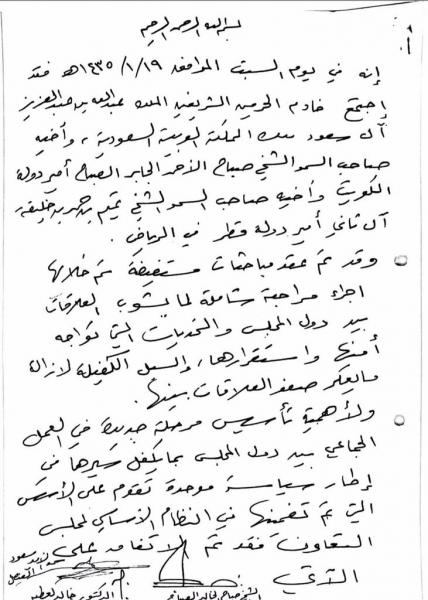 بسم الله الرحمن الرحيم
إنه في يوم السبت الموافق ١٤٣٥/١/١٩هـ فقد
اجتمع خادم الحرمين الشريفين الملك عبدالله بن عبدالعزيز
آل سعود ملك المملكة العربية السعودية، وأخيه
صاحب السمو الشيخ صباح الأحمد الجابر الصباح أمير دولة
الكويت وأخيه صاحب السمو الشيخ تميم بن حمد بن خليفة
آل ثاني أمير دولة قطر في الرياض.
وقد تم عقد مباحثات مستفيضة تم خلالها
اجراء مراجعة شاملة لما يشوب العلاقات
بين دول المجلس والتحديات التي تواجه
أمنها واستقرارها، والسبل الكفيلة لازالة
ما يعكر صفو العلاقات بينها.
ولأهمية تأسيس مرحلة جديدة في العمل
الجماعي بين دول المجلس بما يكفل سيرها في
إطار سياسة موحدة تقوم على الأسس
التي تم تضمينها في النظام الأساسي لمجلس
التعاون فقد تم الاتفاق على
الآتي
سعود الفيصل
الشيخ صباح الخالد الصباح
الدكتور خالد العطية